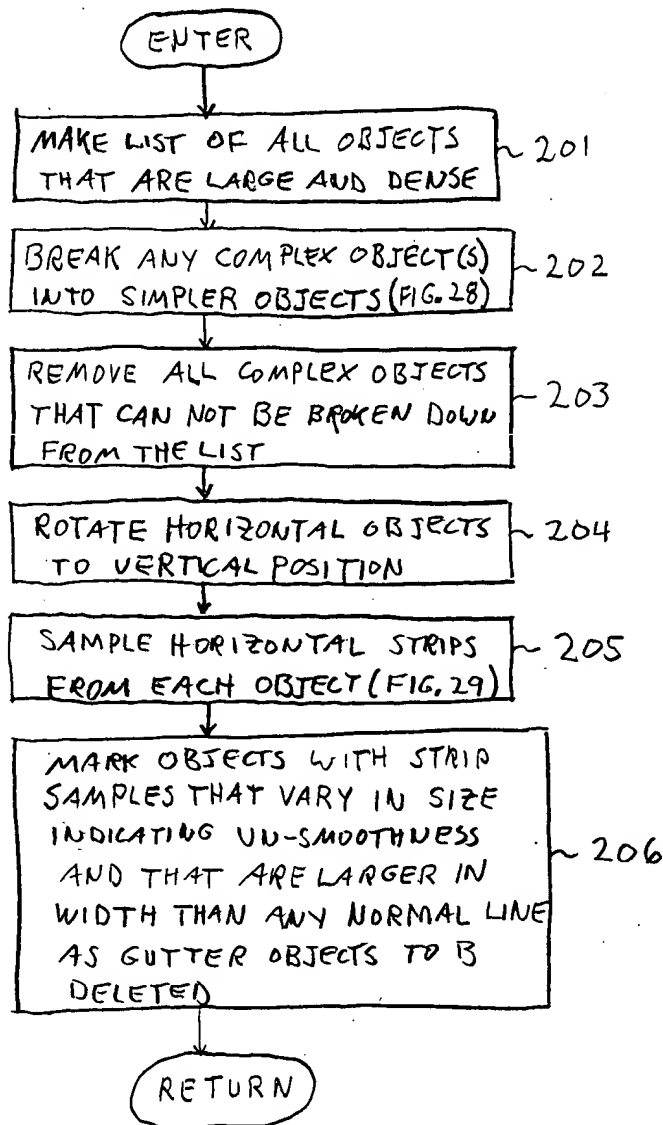 ENTER
MAKE LIST OF ALL OBJECTS
THAT ARE LARGE AND DENSE
~ 201
BREAK ANY COMPLEX OBJECT(S)
INTO SIMPLER OBJECTS (FIG. 28)
~ 202
REMOVE ALL COMPLEX OBJECTS
THAT CAN NOT BE BROKEN DOWN
FROM THE LIST
~ 203
ROTATE HORIZONTAL OBJECTS
TO VERTICAL POSITION
~ 204
SAMPLE HORIZONTAL STRIPS
FROM EACH OBJECT (FIG. 29)
~ 205
MARK OBJECTS WITH STRIP
SAMPLES THAT VARY IN SIZE
INDICATING UN-SMOOTHNESS
AND THAT ARE LARGER IN
WIDTH THAN ANY NORMAL LINE
AS GUTTER OBJECTS TO B
DELETED
~ 206
RETURN